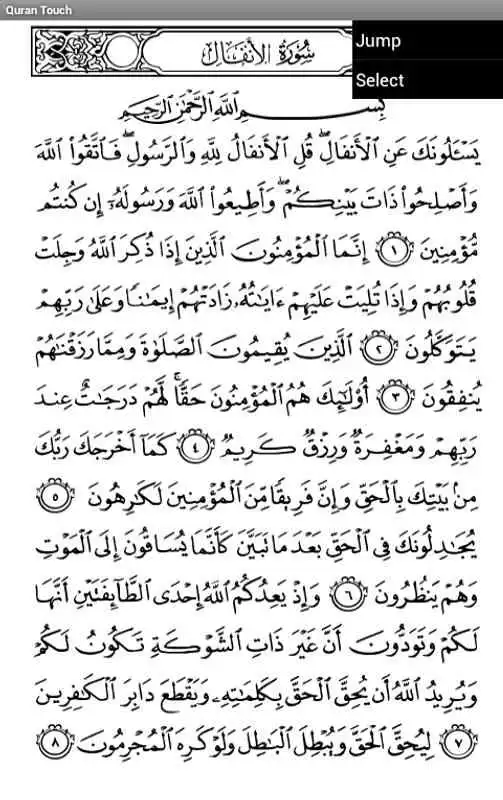 Quran Touch
Jump
Select
سُورَةُ الأَنفَالِ
بِسْمِ اللَّهِ الرَّحْمَٰنِ الرَّحِيمِ
يَسْـَٔلُونَكَ عَنِ الْأَنفَالِ ۖ قُلِ الْأَنفَالُ لِلَّهِ وَالرَّسُولِ ۖ فَاتَّقُوا اللَّهَ
وَأَصْلِحُوا ذَاتَ بَيْنِكُمْ ۖ وَأَطِيعُوا اللَّهَ وَرَسُولَهُۥٓ إِن كُنتُم
مُّؤْمِنِينَ ١ إِنَّمَا الْمُؤْمِنُونَ الَّذِينَ إِذَا ذُكِرَ اللَّهُ وَجِلَتْ
قُلُوبُهُمْ وَإِذَا تُلِيَتْ عَلَيْهِمْ ءَايَٰتُهُۥ زَادَتْهُمْ إِيمَٰنًا وَعَلَىٰ رَبِّهِمْ
يَتَوَكَّلُونَ ٢ الَّذِينَ يُقِيمُونَ الصَّلَوٰةَ وَمِمَّا رَزَقْنَٰهُمْ
يُنفِقُونَ ٣ أُولَٰٓئِكَ هُمُ الْمُؤْمِنُونَ حَقًّا ۚ لَّهُمْ دَرَجَٰتٌ عِندَ
رَبِّهِمْ وَمَغْفِرَةٌ وَرِزْقٌ كَرِيمٌ ٤ كَمَآ أَخْرَجَكَ رَبُّكَ
مِنۢ بَيْتِكَ بِالْحَقِّ وَإِنَّ فَرِيقًا مِّنَ الْمُؤْمِنِينَ لَكَٰرِهُونَ ٥
يُجَٰدِلُونَكَ فِي الْحَقِّ بَعْدَ مَا تَبَيَّنَ كَأَنَّمَا يُسَاقُونَ إِلَى الْمَوْتِ
وَهُمْ يَنظُرُونَ ٦ وَإِذْ يَعِدُكُمُ اللَّهُ إِحْدَى الطَّآئِفَتَيْنِ أَنَّهَا
لَكُمْ وَتَوَدُّونَ أَنَّ غَيْرَ ذَاتِ الشَّوْكَةِ تَكُونُ لَكُمْ
وَيُرِيدُ اللَّهُ أَن يُحِقَّ الْحَقَّ بِكَلِمَٰتِهِۦ وَيَقْطَعَ دَابِرَ الْكَٰفِرِينَ
٧ لِيُحِقَّ الْحَقَّ وَيُبْطِلَ الْبَٰطِلَ وَلَوْ كَرِهَ الْمُجْرِمُونَ ٨